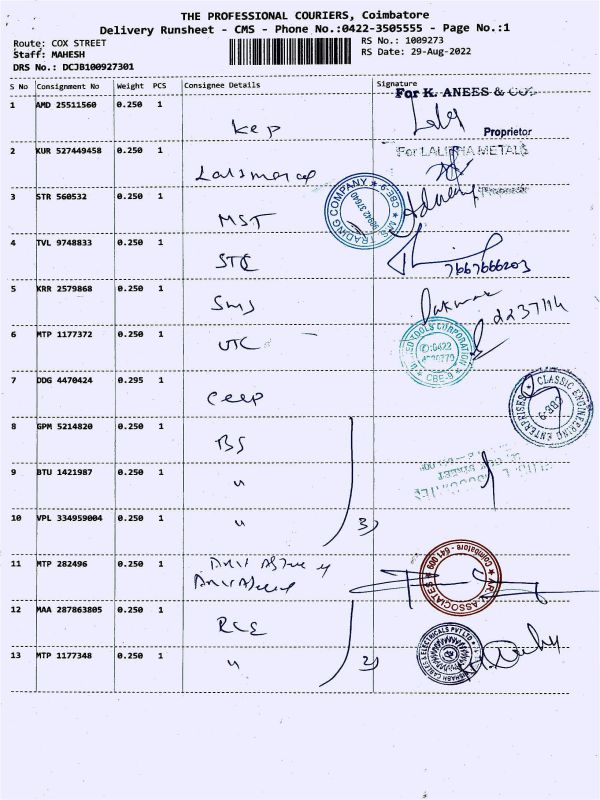 THE PROFESSIONAL COURIERS, Coimbatore
Delivery Runsheet - CMS - Phone No.:0422-3505555 - Page No.:1
Route: COX STREET
Staff: MAHESH
DRS No.: DCJB100927301
RS No.: 1009273
RS Date: 29-Aug-2022
S No Consignment No Weight PCS Consignee Details Signature
For K. ANEES & COS
1 AMD 25511560 0.250 1 Kep
Proprietor
For LALITHA METALS
2 KUR 527449458 0.250 1
3 STR 560532 0.250 1 MST
TRADING COMPANY ★ CBE-9 ★
4 TVL 9748833 0.250 1 STC
7667666203
5 KRR 2579868 0.250 1 SMS
6 MTP 1177372 0.250 1 UTC
TOOLS CORPORATION
✆:0422
★ CBE-9 ★
7 DDG 4470424 0.295 1 Ceep
CLASSIC ENGINEERING ENTERPRISES
CBE-9
8 GPM 5214820 0.250 1 BS
9 BTU 1421987 0.250 1 "
10 VPL 334959004 0.250 1 " 3)
11 MTP 282496 0.250 1
A.R.V. ASSOCIATES ★ Coimbatore - 641 009 ★
12 MAA 287863805 0.250 1 RCE
CABLES & ELECTRICALS PVT LTD
13 MTP 1177348 0.250 1 " 2)